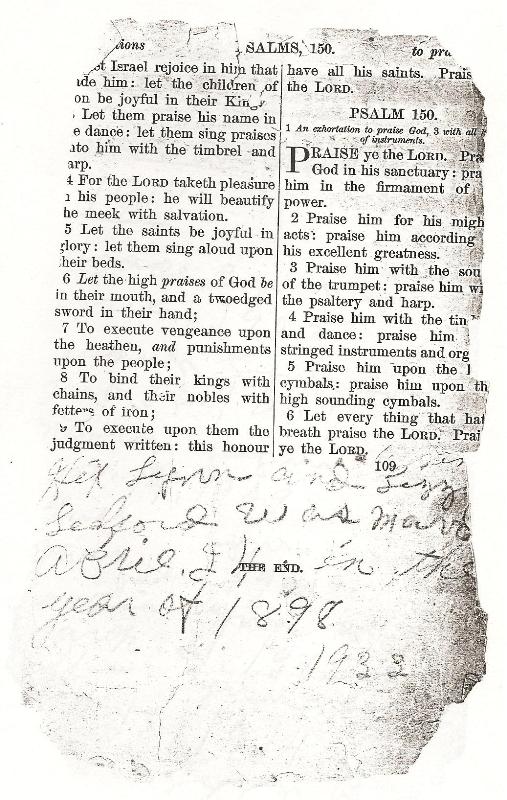 SALMS, 150.
to
Israel rejoice in him that
him: let the children of
on be joyful in their
Let them praise his name in
e dance: let them sing praises
him with the timbrel and
arp.
4 For the LORD taketh pleasure
his people: he will beautify
he meek with salvation.
5 Let the saints be joyful in
glory: let them sing aloud upon
heir beds.
6 Let the high praises of God be
in their mouth, and a twoedged
sword in their hand;
7 To execute vengeance upon
the heathen, and punishments
upon the people;
8 To bind their kings with
chains, and their nobles with
fetters of iron;
9 To execute upon them the
judgment written: this honour
have all his saints. Prais
the LORD.
PSALM 150.
1 An exhortation to praise God, 3 with all
of instruments.
PRAISE ye the LORD. Pra
God in his sanctuary: pra
him in the firmament of
power.
2 Praise him for his migh
acts: praise him according
his excellent greatness.
3 Praise him with the sou
of the trumpet: praise him wi
the psaltery and harp.
4 Praise him with the tim
and dance: praise him
stringed instruments and org
5 Praise him upon the l
cymbals: praise him upon th
high sounding cymbals.
6 Let every thing that hat
breath praise the LORD. Prai
ye the LORD.
109
and
was
April, 24 in the
THE END.
year of 1898
1933